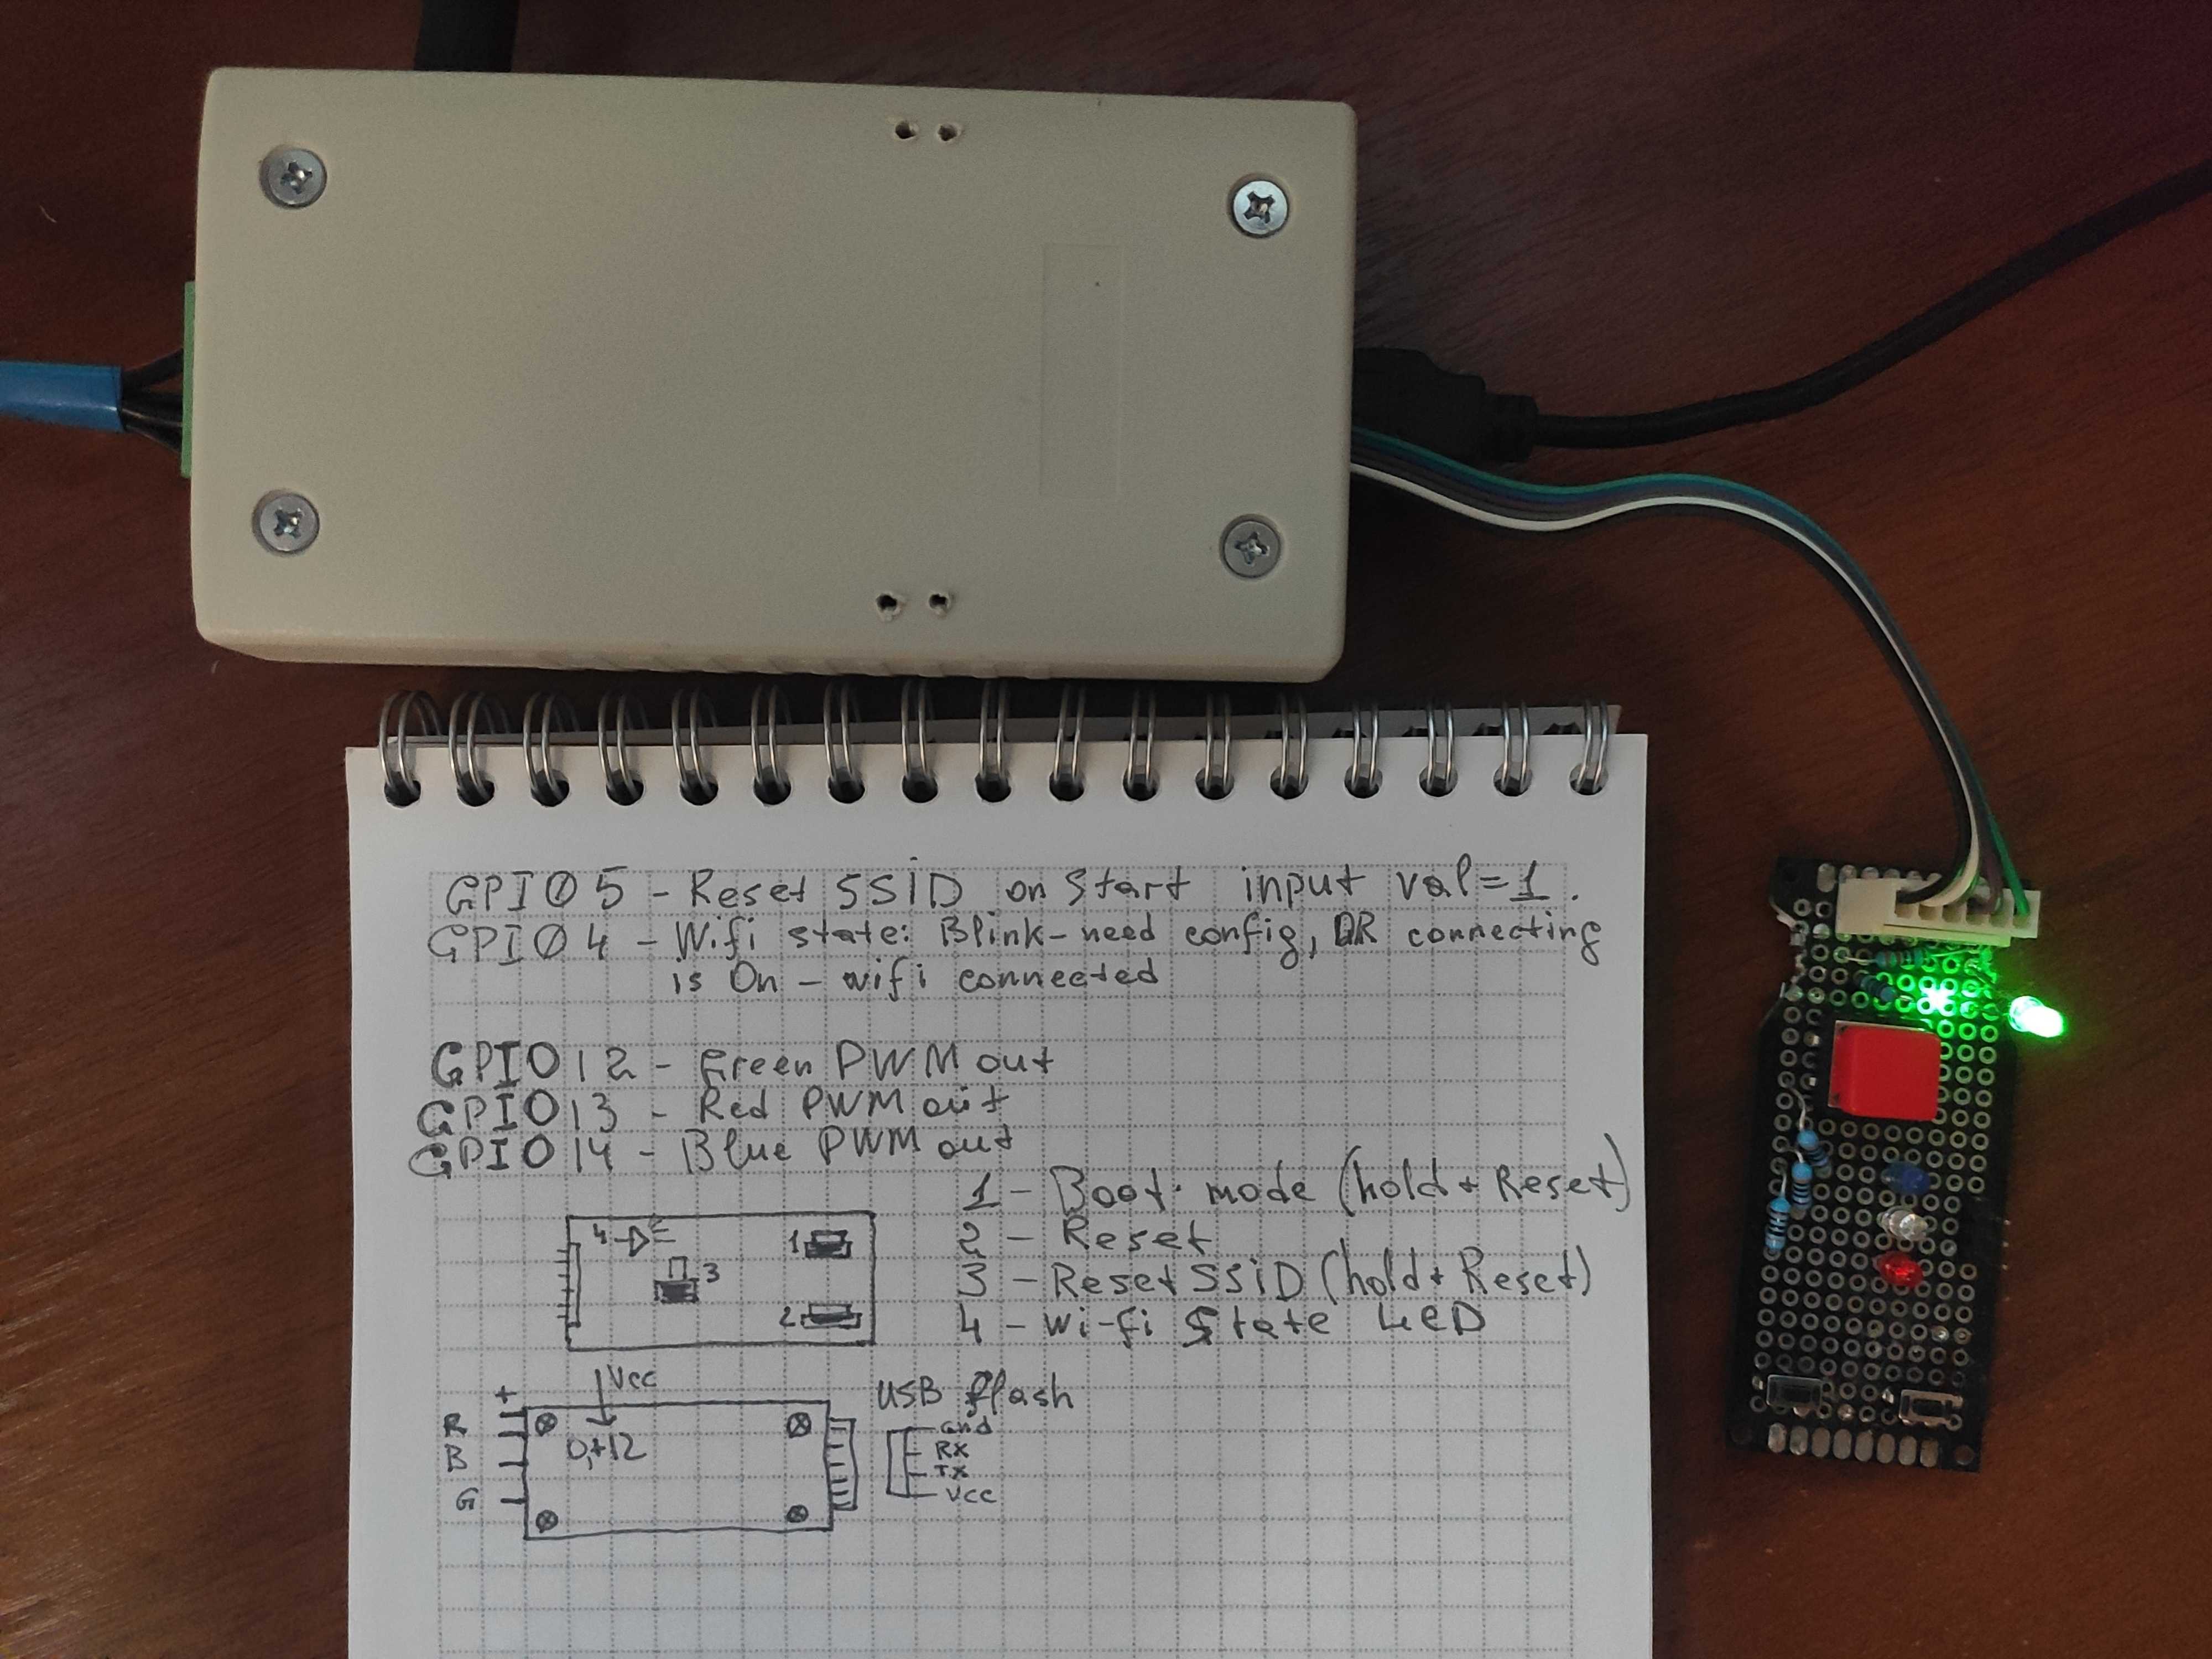 GPIO5 - Reset SSID on Start input val=1.
GPIO4 - Wifi state: Blink-need config, OR connecting
is On - wifi connected
GPIO12 - Green PWM out
GPIO13 - Red PWM out
GPIO14 - Blue PWM out
1 - Boot mode (hold + Reset)
2 - Reset
3 - Reset SSID (hold + Reset)
4 - Wi-fi State LED
4
1
3
2
+
Vcc
USB flash
R
B
G
0,+12
Gnd
RX
TX
Vcc